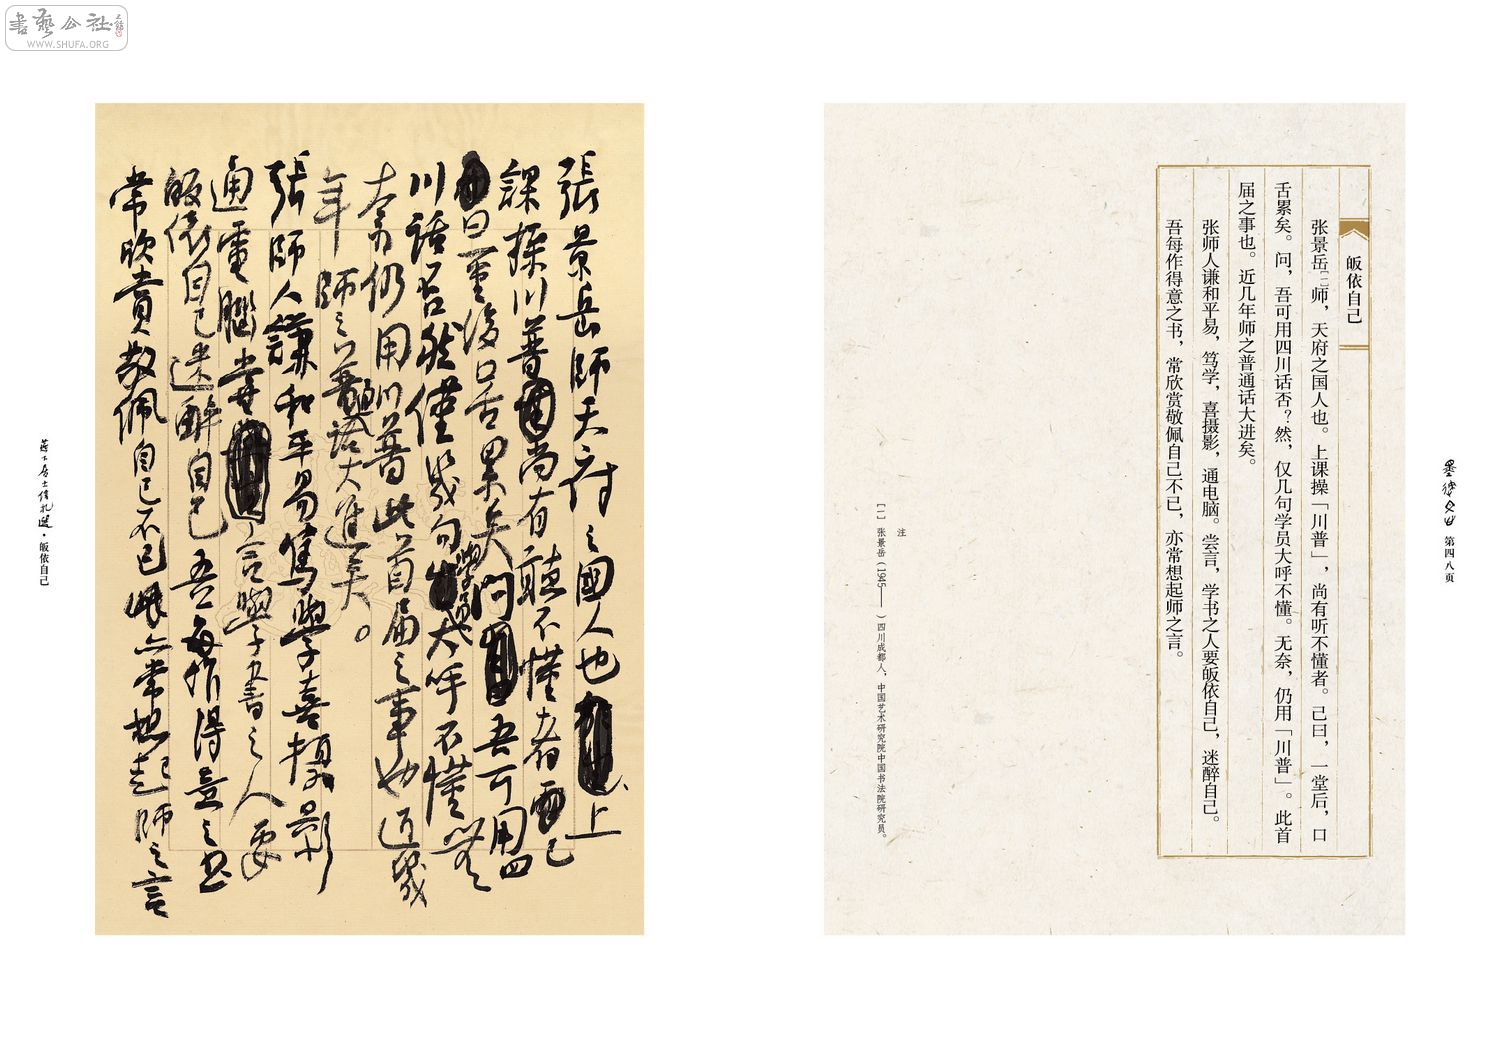 書藝公社
WWW.SHUFA.ORG
第四八页
皈依自己
张景岳[一]师，天府之国人也。上课操「川普」，尚有听不懂者。己曰，一堂后，口
舌累矣。问，吾可用四川话否？然，仅几句学员大呼不懂。无奈，仍用「川普」。此首
届之事也。近几年师之普通话大进矣。
张师人谦和平易，笃学，喜摄影，通电脑。尝言，学书之人要皈依自己，迷醉自己。
吾每作得意之书，常欣赏敬佩自己不已，亦常想起师之言。
注
[一] 张景岳（1945—— ）四川成都人，中国艺术研究院中国书法院研究员。
張景岳師天府之國人也上
課操川普尚有聽不懂者己
曰一堂後口舌累矣問吾可用四
川話否然僅幾句學員大呼不懂無
奈仍用川普此首届之事也近幾
年師之普通話大進矣。
張師人謙和平易篤學喜攝影
通電腦嘗言學書之人要
皈依自己迷醉自己吾每作得意之書
常欣賞敬佩自己不已亦常想起師之言
·皈依自己